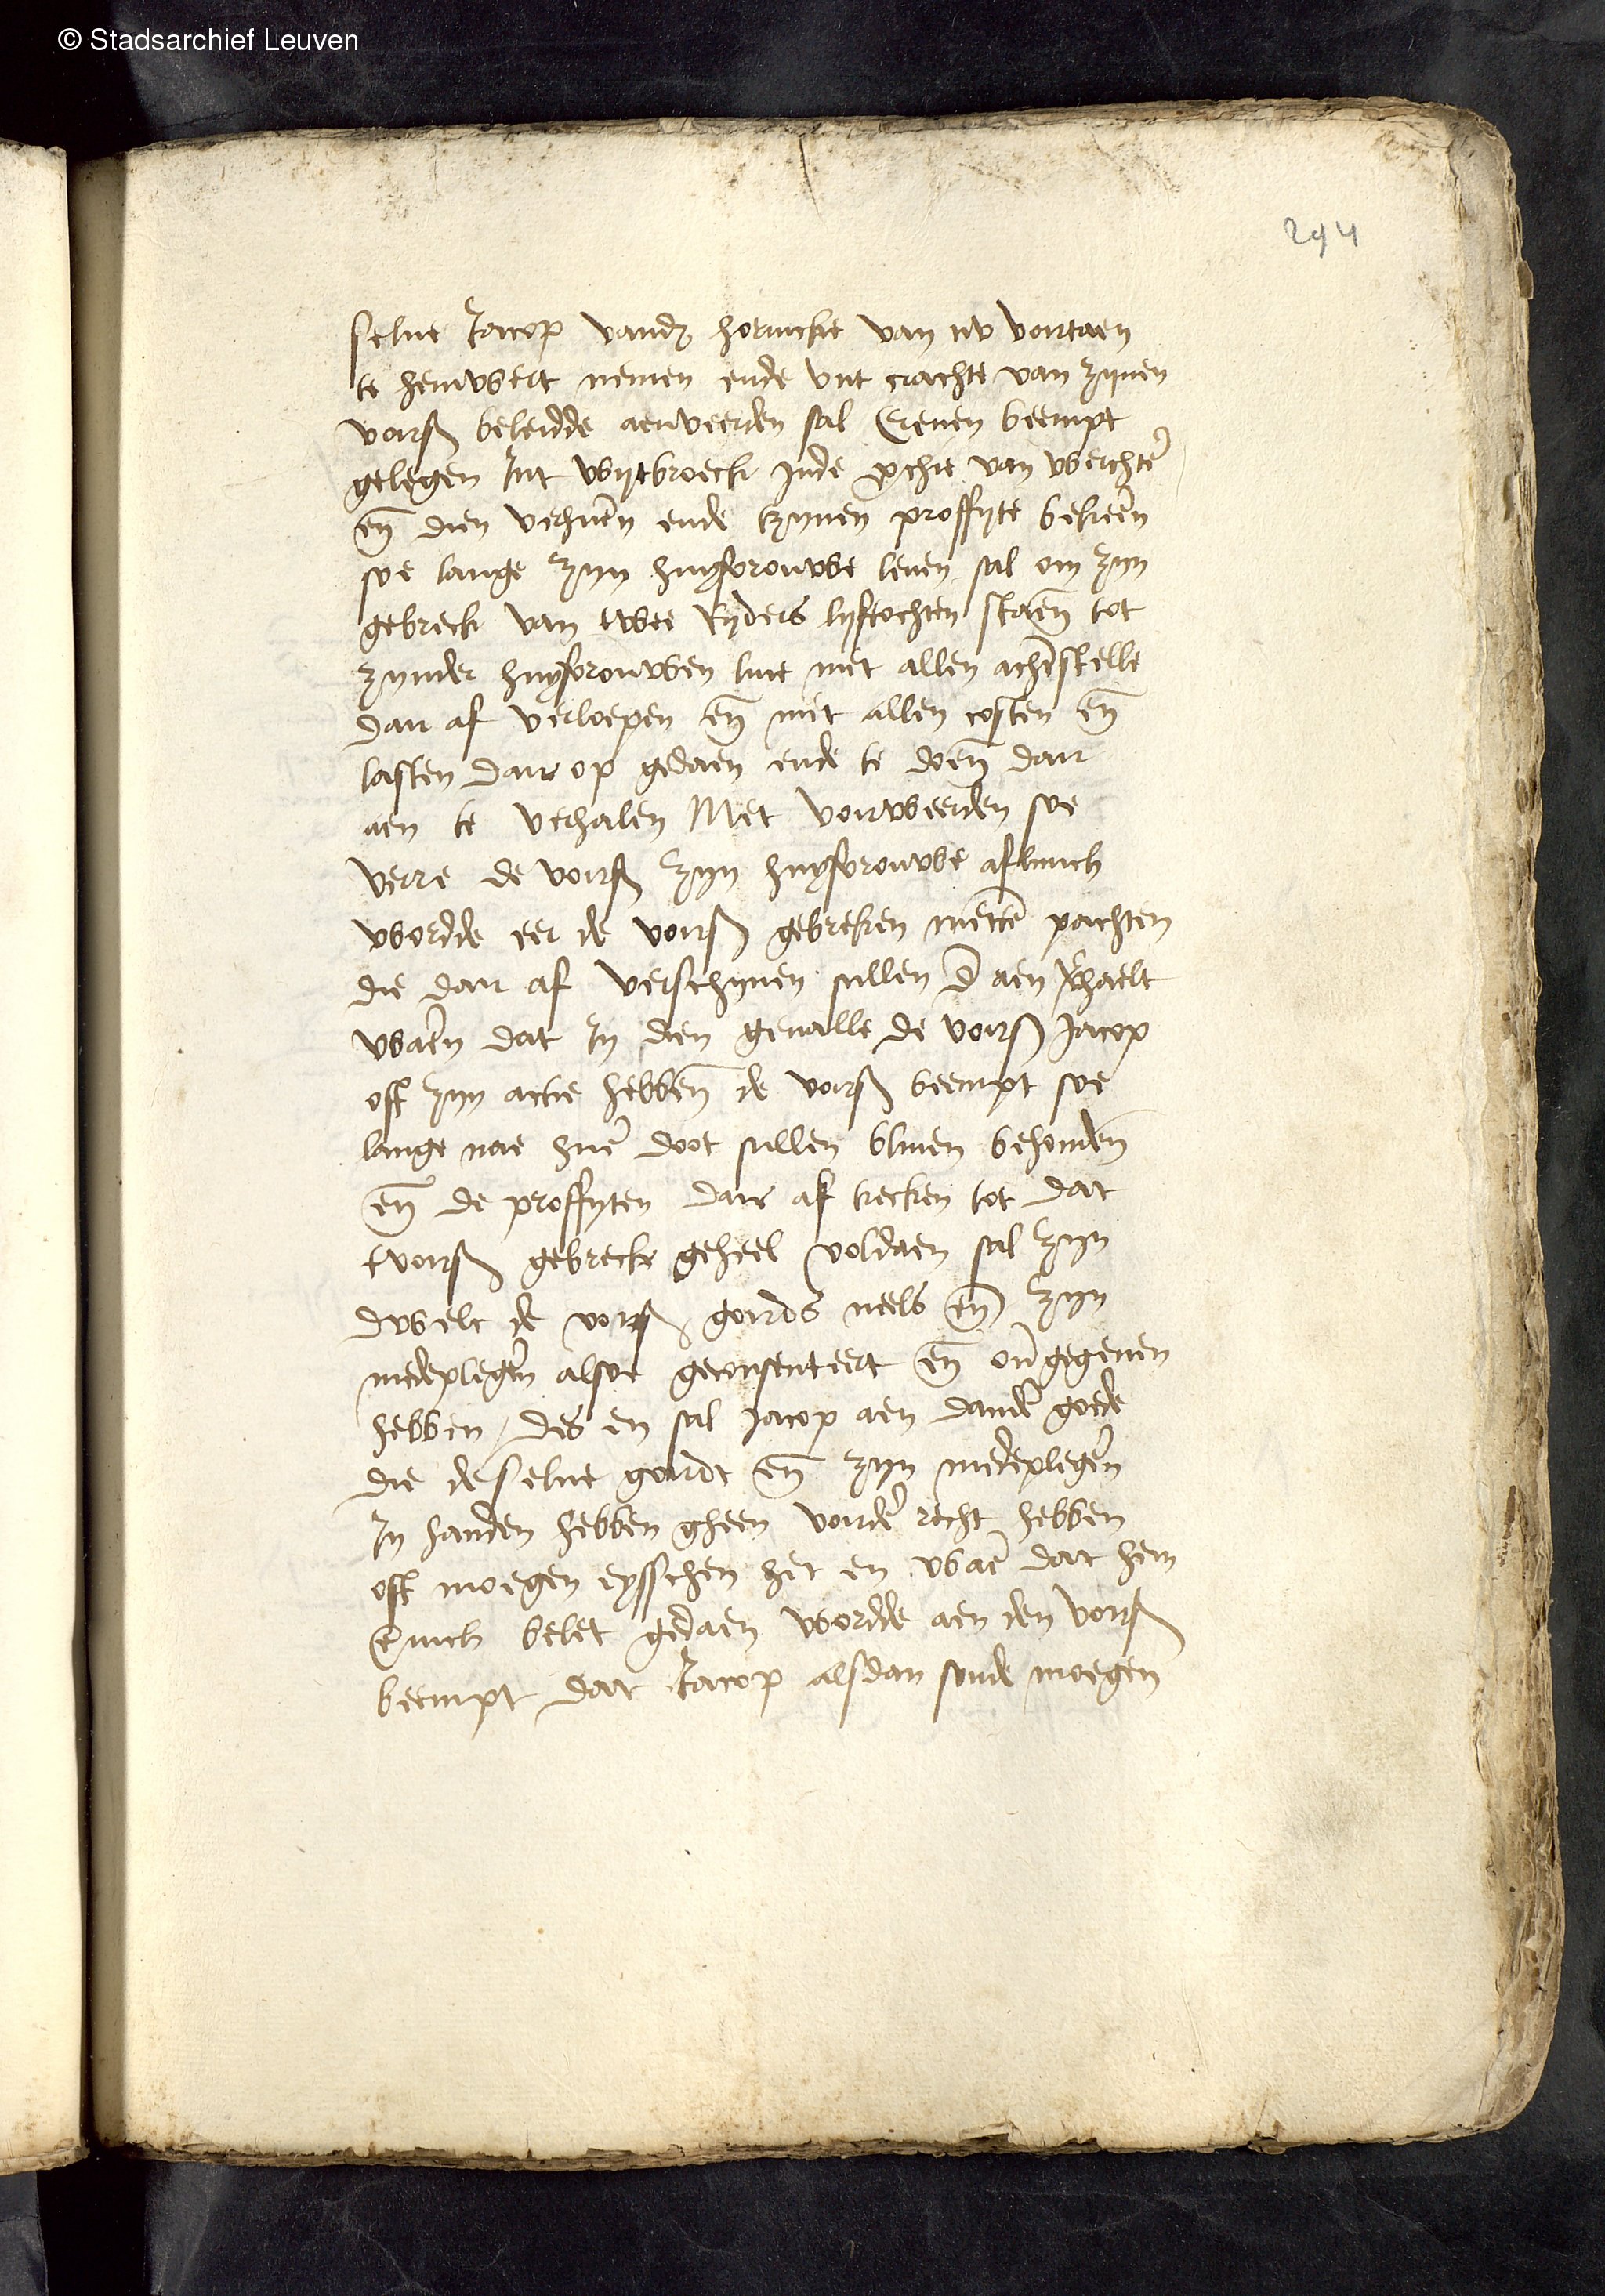 © Stadsarchief Leuven
294
selue Jacop vand hornicke van nv vortaen
te hemwert nemen ende vut crachte van zijnen
voirs beleidde aenveerden sal Eenen beempt
gelegen Int wijtbroeck Inde pchie van werchte
en dien verhuen ende tzynen proffyte bekeen
soe lange zyn huysvrouwe leuen sal om zyn
gebreck van twee Ryders lyftochten staen tot
zynder huysvrouwen liue met allen achestelle
dair af verloepen en met allen costen en
lasten dair op gedaen ende te doen dair
aen te verhalen Met vorweerden soe
verre de voirs zyn huysvrouwe aflivich
wordde eer de voirs gebreken mette pachten
die dair af verschynen sullen d aen vhaelt
waen dat In dien geualle de voirs Jacop
oft zyn actie hebben de voirs beempt soe
lange nae hue doot sullen bliuen behouden
en de proffyten dair af trecken tot dat
tvoirs gebreck geheel voldaen sal zyn
dwelc de voirs goirds neels en zyn
medeplegen alsoe geconsenteert en ougegeuen
hebben / des en sal Jacop aen dande goede
die de selue goirdt en zyn medeplegen
In handen hebben gheen vorde recht hebben
oft moegen eysschen het en wae dat hem
Enich belet gedaen wordde aen den voirs
beempt dat Jacop alsdan soude moegen